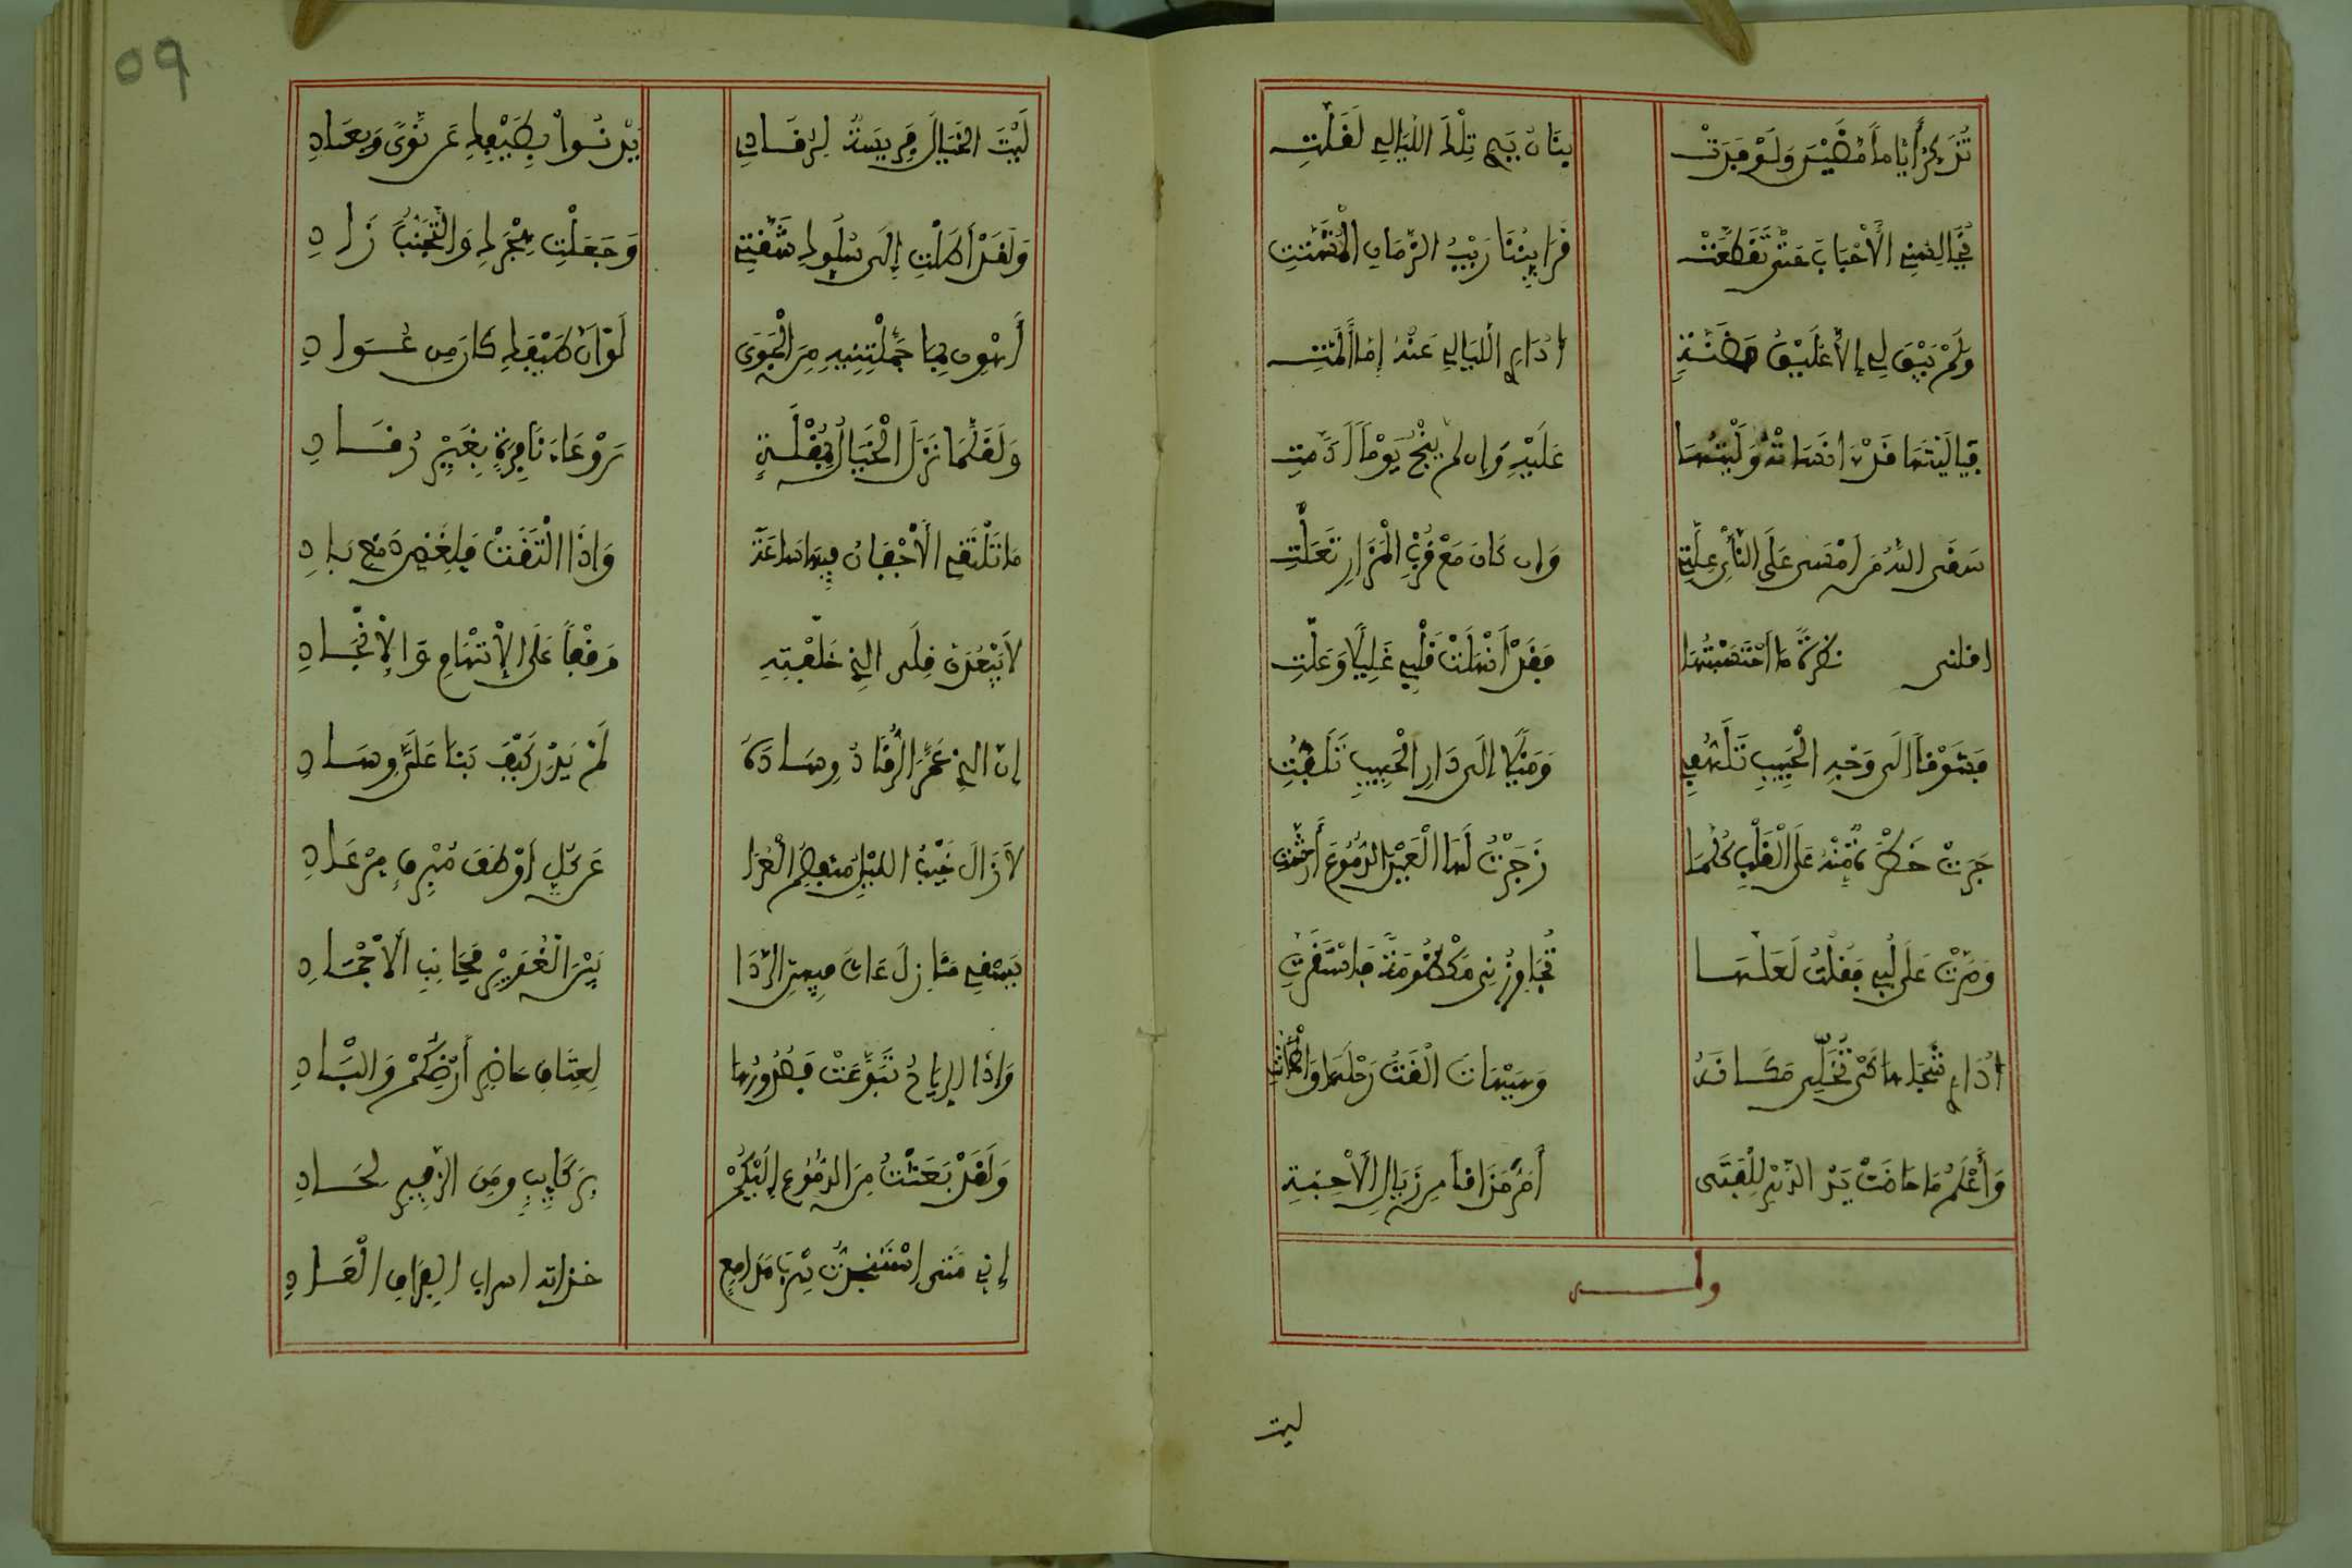 تُذَكِّرُ أَيَّاماً مَضَيْنَ وَلَوْ فَدَتْ بَنَانُ يَدِي تِلْكَ اللَّيَالِي لَقَلَّتِ
الأَحْبَابَ حَتَّى تَقَطَّعَتْ قَرَابِينُنَا رَيْبُ الزَّمَانِ الْمُشَتِّتِ
وَلَمْ يَبْقَ لِي إِلاَّ عَلِيقُ مَضَنَّةٍ أُدَارِي اللَّيَالِي عَنْهُ إِمَّا أَلَمَّتِ
فَيَا لَيْتَهَا وَلَيْتُهَا عَلَيْهِ وَإِن لم يَنْجُ يَوْماً
سَقَى اللهُ مَن أَمْسَى عَلَى النَّأْيِ عِلَّتِي وَإِن كَانَ مَعْ قُرْبِ الْمَزَارِ تَعَلَّتِ
نظرة ما احْتَسَبْتُهَا فَقَدْ أَنْهَلَتْ قَلْبِي غَلِيلاً وَعَلَّتِ
فَشَوْقاً إِلَى وَجْهِ الْحَبِيبِ تَلَهُّفِي وَمَيْلاً إِلَى دَارِ الْحَبِيبِ تَلَفُّتِي
جَرَتْ خَطْرَةٌ مِّنْهُ عَلَى الْقَلْبِ كُلَّمَا زَجَرْتُ لَهَا الْعَيْنَ الدَّمُوعَ أَرَشَّتِ
وَمَرَّتْ عَلَى لُبِّي فَقُلْتُ لَعَلَّهَا تُجَاوِزُنِي مَكْظُومَةً فَاسْتَقَرَّتِ
أُدَارِي شَجَاهَا كَيْ تُخَلَّى مَكَانَهُ وَهَيْهَاتَ أَلْقَتْ رَحْلَهَا وَاطْمَأَنَّتِ
وَأَعْلَمُ مَا خَاضَتْ يَدُ الدَّهْرِ لِلْفَتَى أَمَرَّ مَذَاقاً مِن زِيَالِ الأَحِبَّةِ
وله
ليت
09
لَيْتَ الْخَيَالَ فَرِيسَةٌ لِرُقَادِي يَدْنُوا بِطَيْفِكِ عَن نَّوًى وَبِعَادِ
وَلَقَدْ أَطَلْتِ إِلَى سُلُوِّكِ شُقَّتِي وَجَعَلْتِ هِجْرَكِ وَالتَّجَنُّبَ زَادِ
أَهْوِن بِمَا حَمَّلْتِنِيهِ مِنَ الْجَوَى لَوْ أَنَّ طَيْفَكِ كَانَ مِن عُوَادِ
وَلَقَلَّمَا نَزَلَ الْخَيَالُ بِمُقْلَةٍ رَوْعَاءَ نَافِرَةٍ بِغَيْرِ رُقَادِ
مَا تَلْتَقِي الأَجْفَانُ مِنْهَا سَاعَةً وَإِذَا الْتَقَتْ فَلِغَيْضِ دَمْعٍ بَادِ
لاَ يَبْعُدَنْ قَلْبِي الذِي خَلَّفْتِهِ وَقْفاً عَلَى الإِتْهَامِ وَالإِنْجَادِ
إِنَّ الذِي غَمَرَ الرُّقَادُ وِسَادَهُ لَمْ يَدْرِ كَيْفَ نَبَا عَلَيَّ وِسَادِ
لاَ زَالَ جَيْبُ اللَّيْلِ مُنفَصِمُ الْعُرَا عَن كُلِّ أَوْطَفَ مُبْرِقٍ مِرْعَادِ
يَسْقِي مَنَازِلَ عَاثَ فِيهِنَّ الرَّدَا بَيْنَ الْغُوَيْرِ فَجَانِبِ الأَجْمَادِ
وَإِذَا الرِّيَاحُ تَبَوَّعَتْ فَصُدُورُهَا لِعِنَاقِ حَاضِرِ أَرْضِكُمْ وَالْبَادِ
وَلَقَدْ بَعَثْتُ مِنَ الدُّمُوعِ إِلَيْكُمْ بِرَكَائِبٍ وَمِنَ الزَّفِيرِ بِحَادِ
إِنِّي مَتَى اسْتَنْجَدْتُ سِرْبَ مَدَامِعٍ خَذَلَتْهُ أَسْرَابُ الْفِرَاقِ الْعَادِ